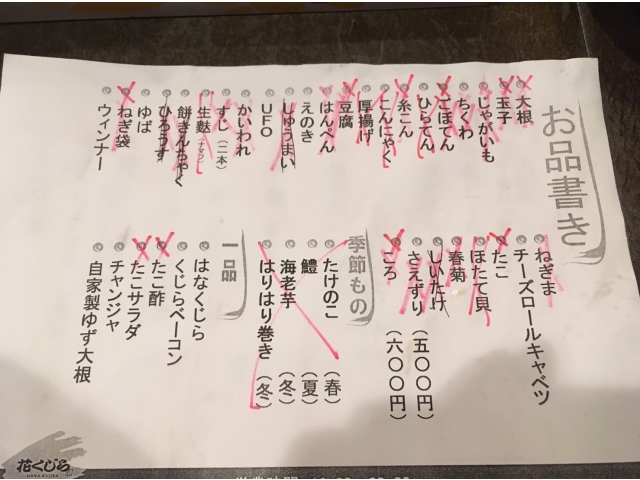 お品書き
大根
玉子
じゃがいも
ちくわ
ごぼてん
ひらてん
糸こん
こんにゃく
厚揚げ
豆腐
はんぺん
えのき
しゅうまい
UFO
かいわれ
すじ（二本）
生麩（ナマフ）
餅きんちゃく
ひろうす
ゆば
ねぎ袋
ウィンナー
ねぎま
チーズロールキャベツ
たこ
ほたて貝
春菊
しいたけ
さえずり（五〇〇円）
ころ（六〇〇円）
季節もの
たけのこ（春）
鱧（夏）
海老芋（冬）
はりはり巻き（冬）
一品
はなくじら
くじらベーコン
たこ酢
たこサラダ
チャンジャ
自家製ゆず大根
花くじら